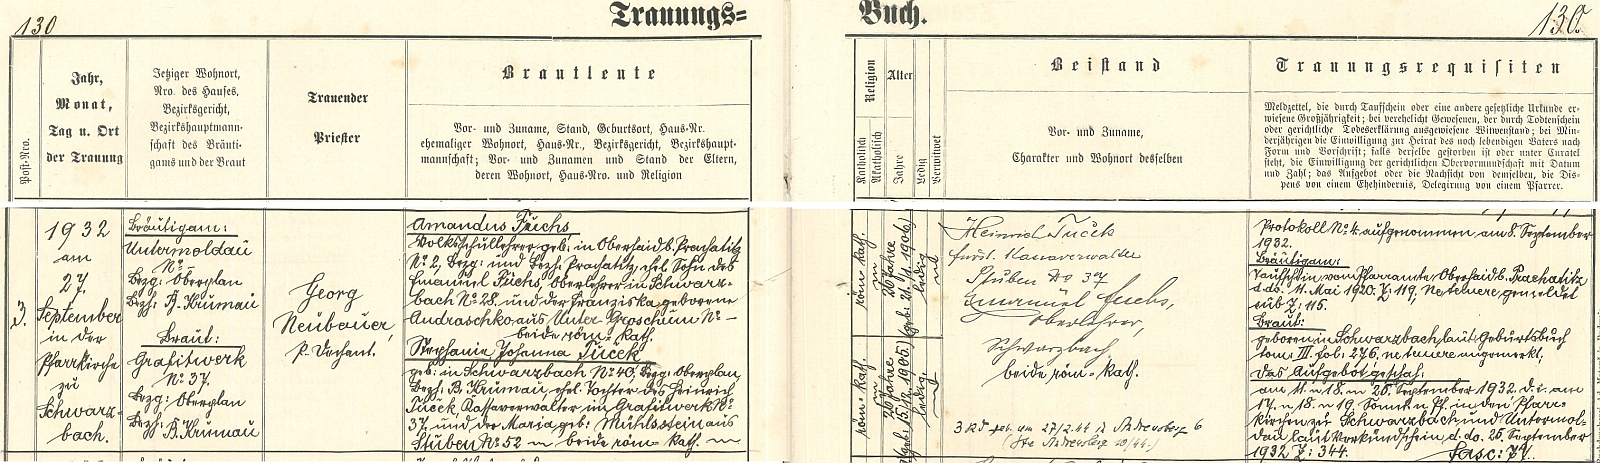 130
Trauungs=
Buch.
130.
Post-Nro.
Jahr,
Monat,
Tag u. Ort
der Trauung
Jetziger Wohnort,
Nro. des Hauses,
Bezirksgericht,
Bezirkshauptmann-
schaft des Bräuti-
gams und der Braut
Trauender
Priester
Brautleute
Vor- und Zuname, Stand, Geburtsort, Haus-Nr.
ehemaliger Wohnort, Haus-Nr., Bezirksgericht, Bezirkshaupt-
mannschaft; Vor- und Zunamen und Stand der Eltern,
deren Wohnort, Haus-Nro. und Religion
Religion
Katholisch
Akatholisch
Alter
Jahre
Ledig
Verwitwet
Beistand
Vor- und Zuname,
Charakter und Wohnort desselben
Trauungsrequisiten
Meldzettel, die durch Taufschein oder eine andere gesetzliche Urkunde er-
wiesene Großjährigkeit; bei verehelicht Gewesenen, der durch Todtenschein
oder gerichtliche Todeserklärung ausgewiesene Witwenstand; bei Min-
derjährigen die Einwilligung zur Heirat des noch lebendigen Vaters nach
Form und Vorschrift; falls derselbe gestorben ist oder unter Curatel
steht, die Einwilligung der gerichtlichen Obervormundschaft mit Datum
und Zahl; das Aufgebot oder die Nachsicht von demselben, die Dis-
pens von einem Ehehindernis, Delegirung von einem Pfarrer.
3.
1932
am
27.
September
in der
Pfarrkirche
zu
Schwarz-
bach.
Bräutigam:
Untermoldau
No
Bezg: Oberplan
Bezh: B. Krumau
Braut:
Grafitwerk
No 37.
Bezg: Oberplan
Bezh: B. Krumau
Georg
Neubauer,
p. Dechant.
Amandus Fuchs
Volksschullehrer, geb. in Oberhaid b. Prachatitz
No 2, Bezg: und Bezh: Prachatitz, ehel. Sohn des
Emanuel Fuchs, Oberlehrer in Schwarz-
bach No 28. und der Franziska geborene
Andraschko aus Unter Groschum No –
beide röm. kath.
Stephanie Johanna Tucek
geb. in Schwarzbach No 40, Bezg: Oberplan,
Bezh: B. Krumau, ehel. Tochter des Heinrich
Tucek, Kassaverwalter in Grafitwerk No
37. und der Maria geb: Mühlstein aus
Stuben No 52 beide röm. kath.
röm. kath.
26 Jahre
(geb. 21/1. 1906)
ledig
röm. kath.
(geb. 15./12. 1905.)
ledig
Heinrich Tucek
fürstl. Kassaverwalter
Stuben No 37
Emanuel Fuchs,
Oberlehrer,
Schwarzbach
beide röm. kath.
Protokoll No 4. aufgenommen am 8. September
1932.
Bräutigam:
Taufschein vom Pfarramte Oberhaid b. Prachatitz
d. do. 11. Mai 1920. Z: 119; Ne temere gemeldet
sub Z: 115.
Braut:
geboren in Schwarzbach, laut Geburtsbuch
tom. III. fol. 276. ne temere angemerkt.
Das Aufgebot geschah:
am 11. u. 18. u. 25. September 1932 d. i. am
17. u. 18. u. 19. Sonnt. n. Pf. in den Pfarr-
kirchen zu Schwarzbach und Untermol-
dau laut Verkündschein, d. do. 25. September
1932 Z: 344. Fasc: 77.